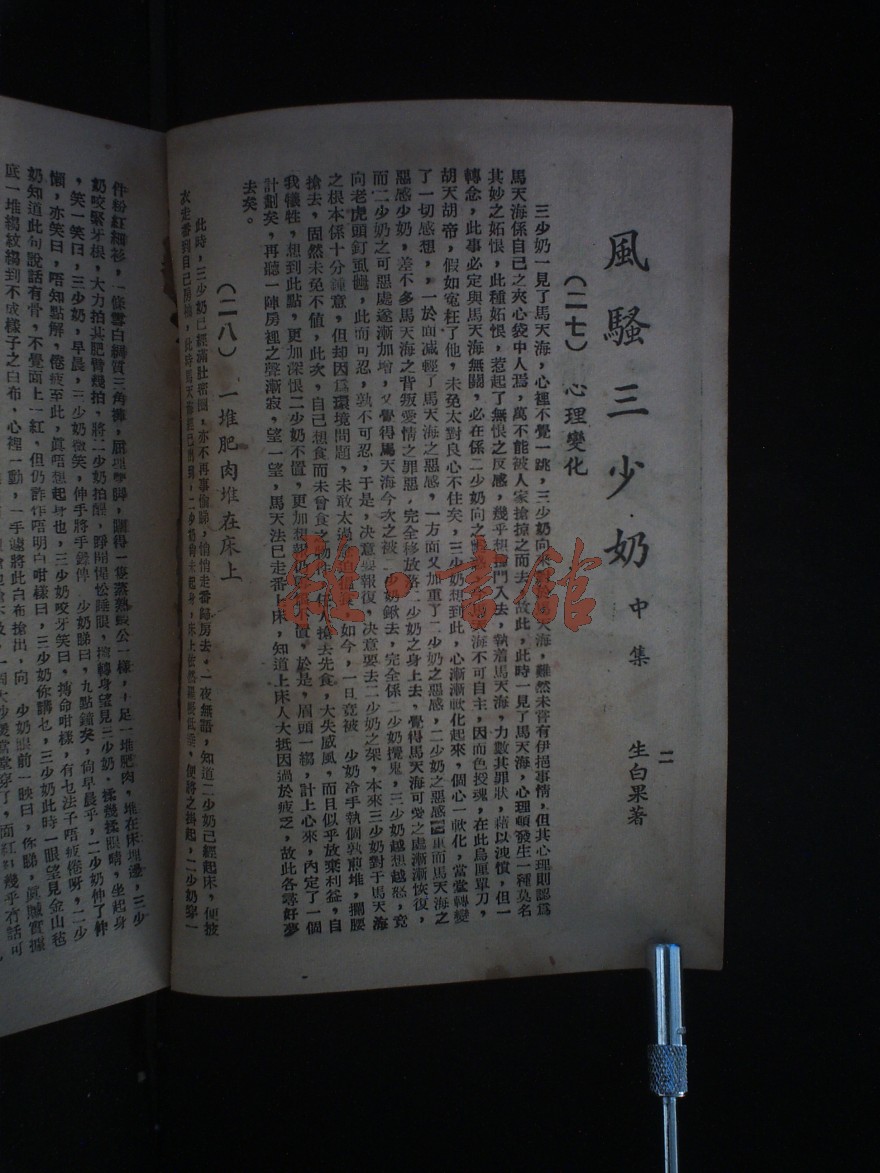 風騷三少奶 中集 生白果著
二
(二七) 心理變化
三少奶一見了馬天海，心裡不覺一跳，三少奶向馬天海，雖然未嘗有伊挹事情，但其心理則認爲
馬天海係自己之夾心袋中人焉，萬不能被人家搶掠之而去，故此，此時一見了馬天海，心理頓發生一種莫名
其妙之妬恨，此種妬恨，惹起了無恨之反感，幾乎想 門入去，執着馬天海，力數其罪狀，藉以洩憤，但一
轉念，此事必定與馬天海無關，必在係二少奶向之 天海不可自主，因而色授魂，在此烏匣單刀，
胡天胡帝，假如寃枉了他，未免太對良心不住矣，三少奶想到此，心漸漸軟化起來，個心一軟化，當堂轉變
了一切感想，一於面减輕了馬天海之惡感，一方面又加重了二少奶之惡感，二少奶之惡感 重而馬天海之
惡感少奶，差不多馬天海之背叛愛情之罪惡，完全移放落二少奶之身上去，覺得馬天海可愛之處漸漸恢復，
而二少奶之可惡處遂漸加增，又覺得馬天海今次之被 少奶鍬去，完全係二少奶攪鬼，三少奶越想越怒，竟
向老虎頭釘虱乸，此而可忍，孰不可忍，于是，决意要報復，决意要去二少奶之架，本來三少奶對于馬天海
之根本係十分鍾意，但却因爲環境問題，未敢太過 如今，一旦竟被 少奶冷手執個熱煎堆，攔腰
搶去，固然未免不値，此次，自己想食而未曾食之物 人搶去先食，大失威風，而且似乎放棄利益，自
我犧牲，想到此點，更加深恨二少奶不置，更加想報仇 不置，於是，眉頭一縐，計上心來，內定了一個
計劃矣，再聽一陣房裡之聲漸寂，望一望，馬天法已走番上床，知道上床人大抵因過於疲乏，故此各尋好夢
去矣。
(二八) 一堆肥肉堆在床上
此時，三少奶已經滿肚密圈，亦不再事偷睇，悄悄走番歸房去，一夜無語，知道二少奶已經起床，便披
衣走番到自己房裡，此時馬天海經已 ，二少奶尙未起身，床上依然羅帳低垂，便將之掛起，二少奶穿一
件粉紅細衫，一條雪白綢質三角褲， 脚，團得一隻蒸熟蝦公一樣，十足一堆肥肉，堆在床裡邊，三少
奶咬緊牙根，大力拍其肥臂幾拍，將二少奶拍醒，睜開惺忪睡眼， 轉身望見三少奶，揉幾揉眼睛，坐起身
，笑一笑曰，三少奶，早晨，三少奶微笑，伸手將手錶俾 少奶睇曰，九點鐘矣，尙早晨乎，二少奶伸了伸
懶，亦笑曰，唔知點解，倦疲至此，眞唔想起身也，三少奶咬牙笑曰，拷命咁樣，有乜法子唔疲倦呀，二少
奶知道此句說話有骨，不覺面上一紅，但仍詐作唔明白咁樣曰，三少奶你講乜，三少奶此時一眼望見金山毡
底一堆縐紋縐到不成樣子之白布，心裡一動，一手遽將此白布搶出，向 少奶眼前一映曰，你睇，眞贓實據
雜·書館